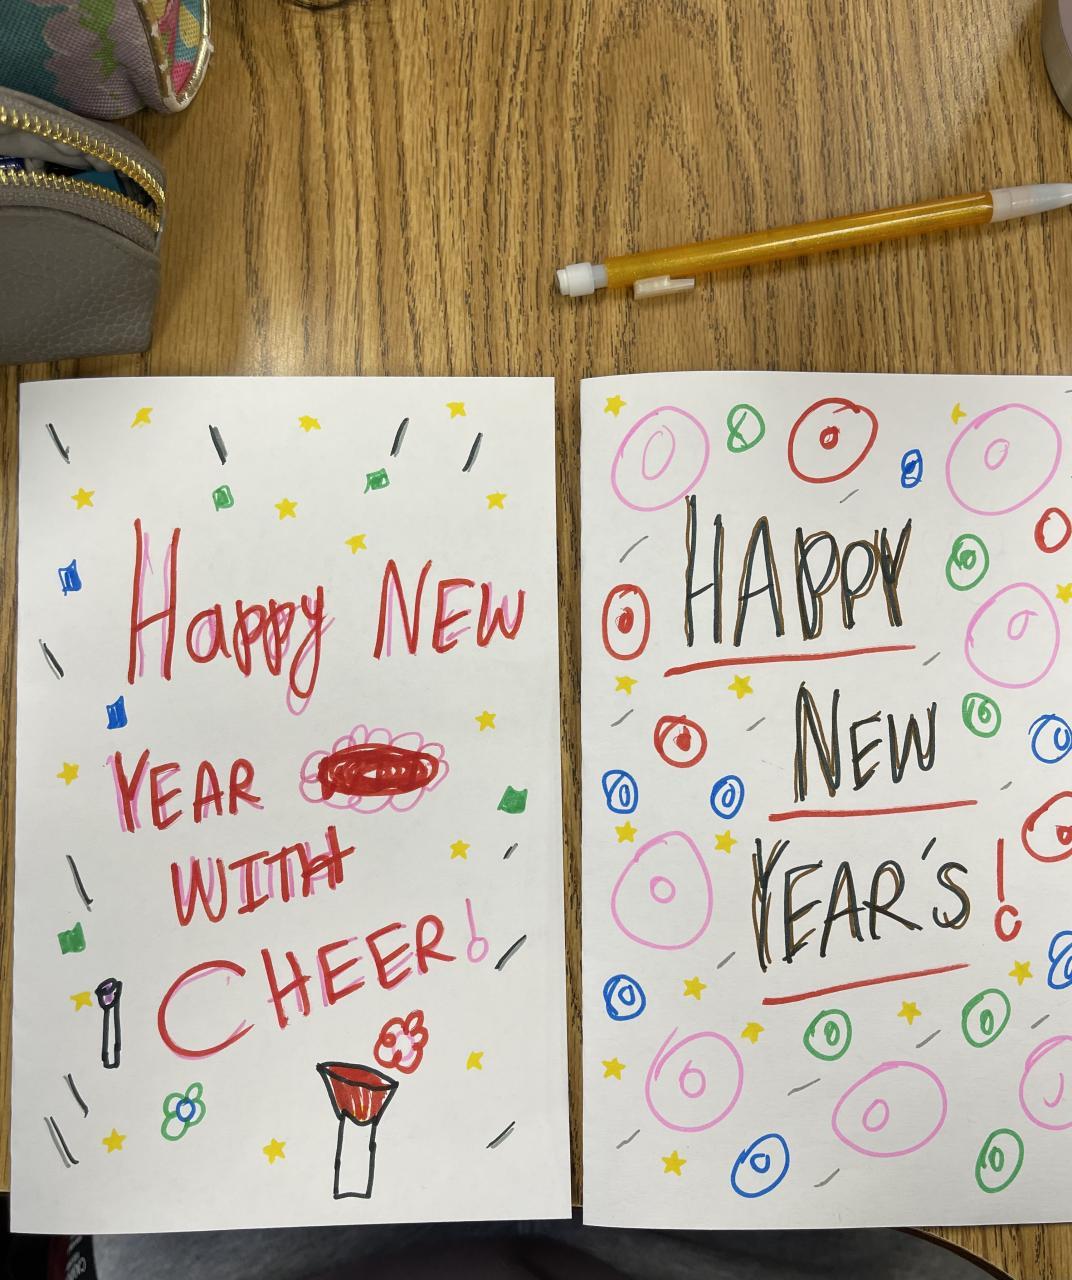 Happy NEW
YEAR
WITH
CHEER!
HAPPY
NEW
YEAR'S!